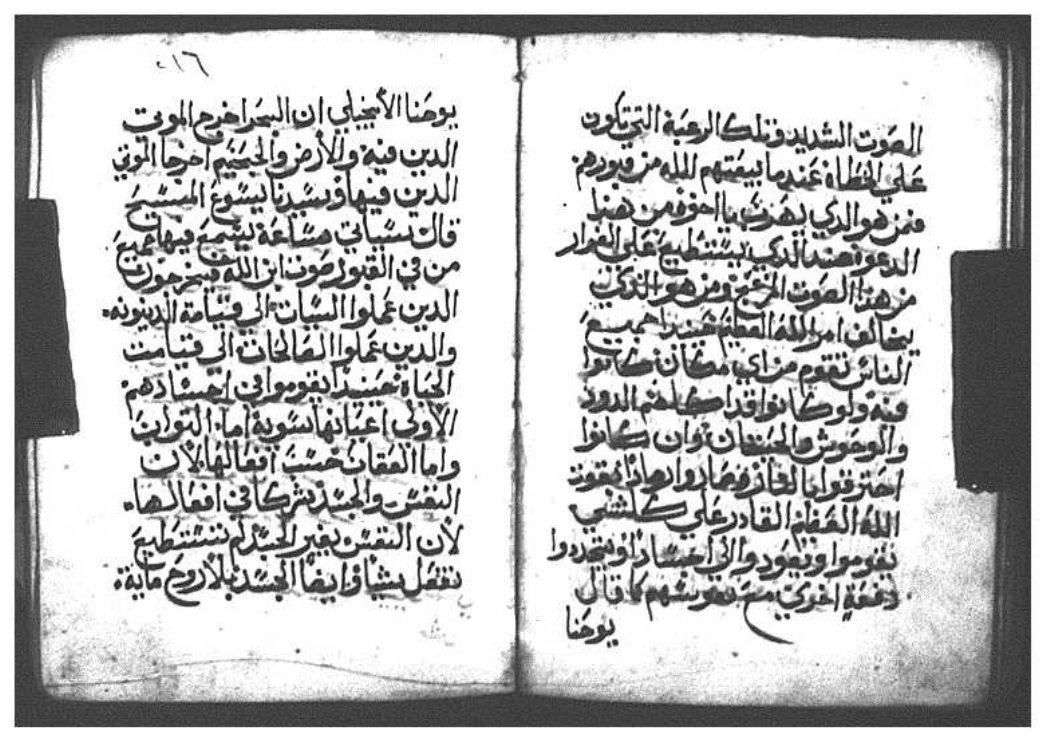 الصوت الشديد وتلك الرعبة التي تكون
علي الخطاه عندما يبعتهم الله من قبورهم
فمن هو الذي يهرب يا اخوه من هذا
الدعوه ضد الذي يستطيع علي الفرار
من هذا الصوت المزعج ومن هو الذي
يخالف امر الله العظيم حيندا جميع
الناس تقوم من اي مكان كانوا
فيه ولو كانوا قد اكلهم الدود
والوحوش والحيتان وان كانوا
احترقوا بالنار وصاروا رمادا بقوة
الله العظيم القادر علي كلشي
تقوموا وتعودوا الي اجسادا ويتجددوا
دفعة اخري مع نفوسهم كما قال
يوحنا
٢١٦
يوحنا الأنجيلي ان البحر اخرج الموت
الدين فيه والأرض والجحيم اخرجا الموتي
الدين فيها وسيدنا يسوع المسيح
قال سياتي ساعة يسمع فيها جميع
من في القبور صوت ابن الله فيخرجون
الدين عملوا السيات الي قيامة الدينونه
والدين عملوا الصالحات الي قيامت
الحياه حيندا يقوموا في اجسادهم
الأولي اعيانها بسوية اما التواب
واما العقاب حسب افعالها لأن
النفس والجسد شركا في افعالها
لأن النفس بغير الجسد لم تستطيع
تفعل شيا وايضا الجسد بلا روح مايته